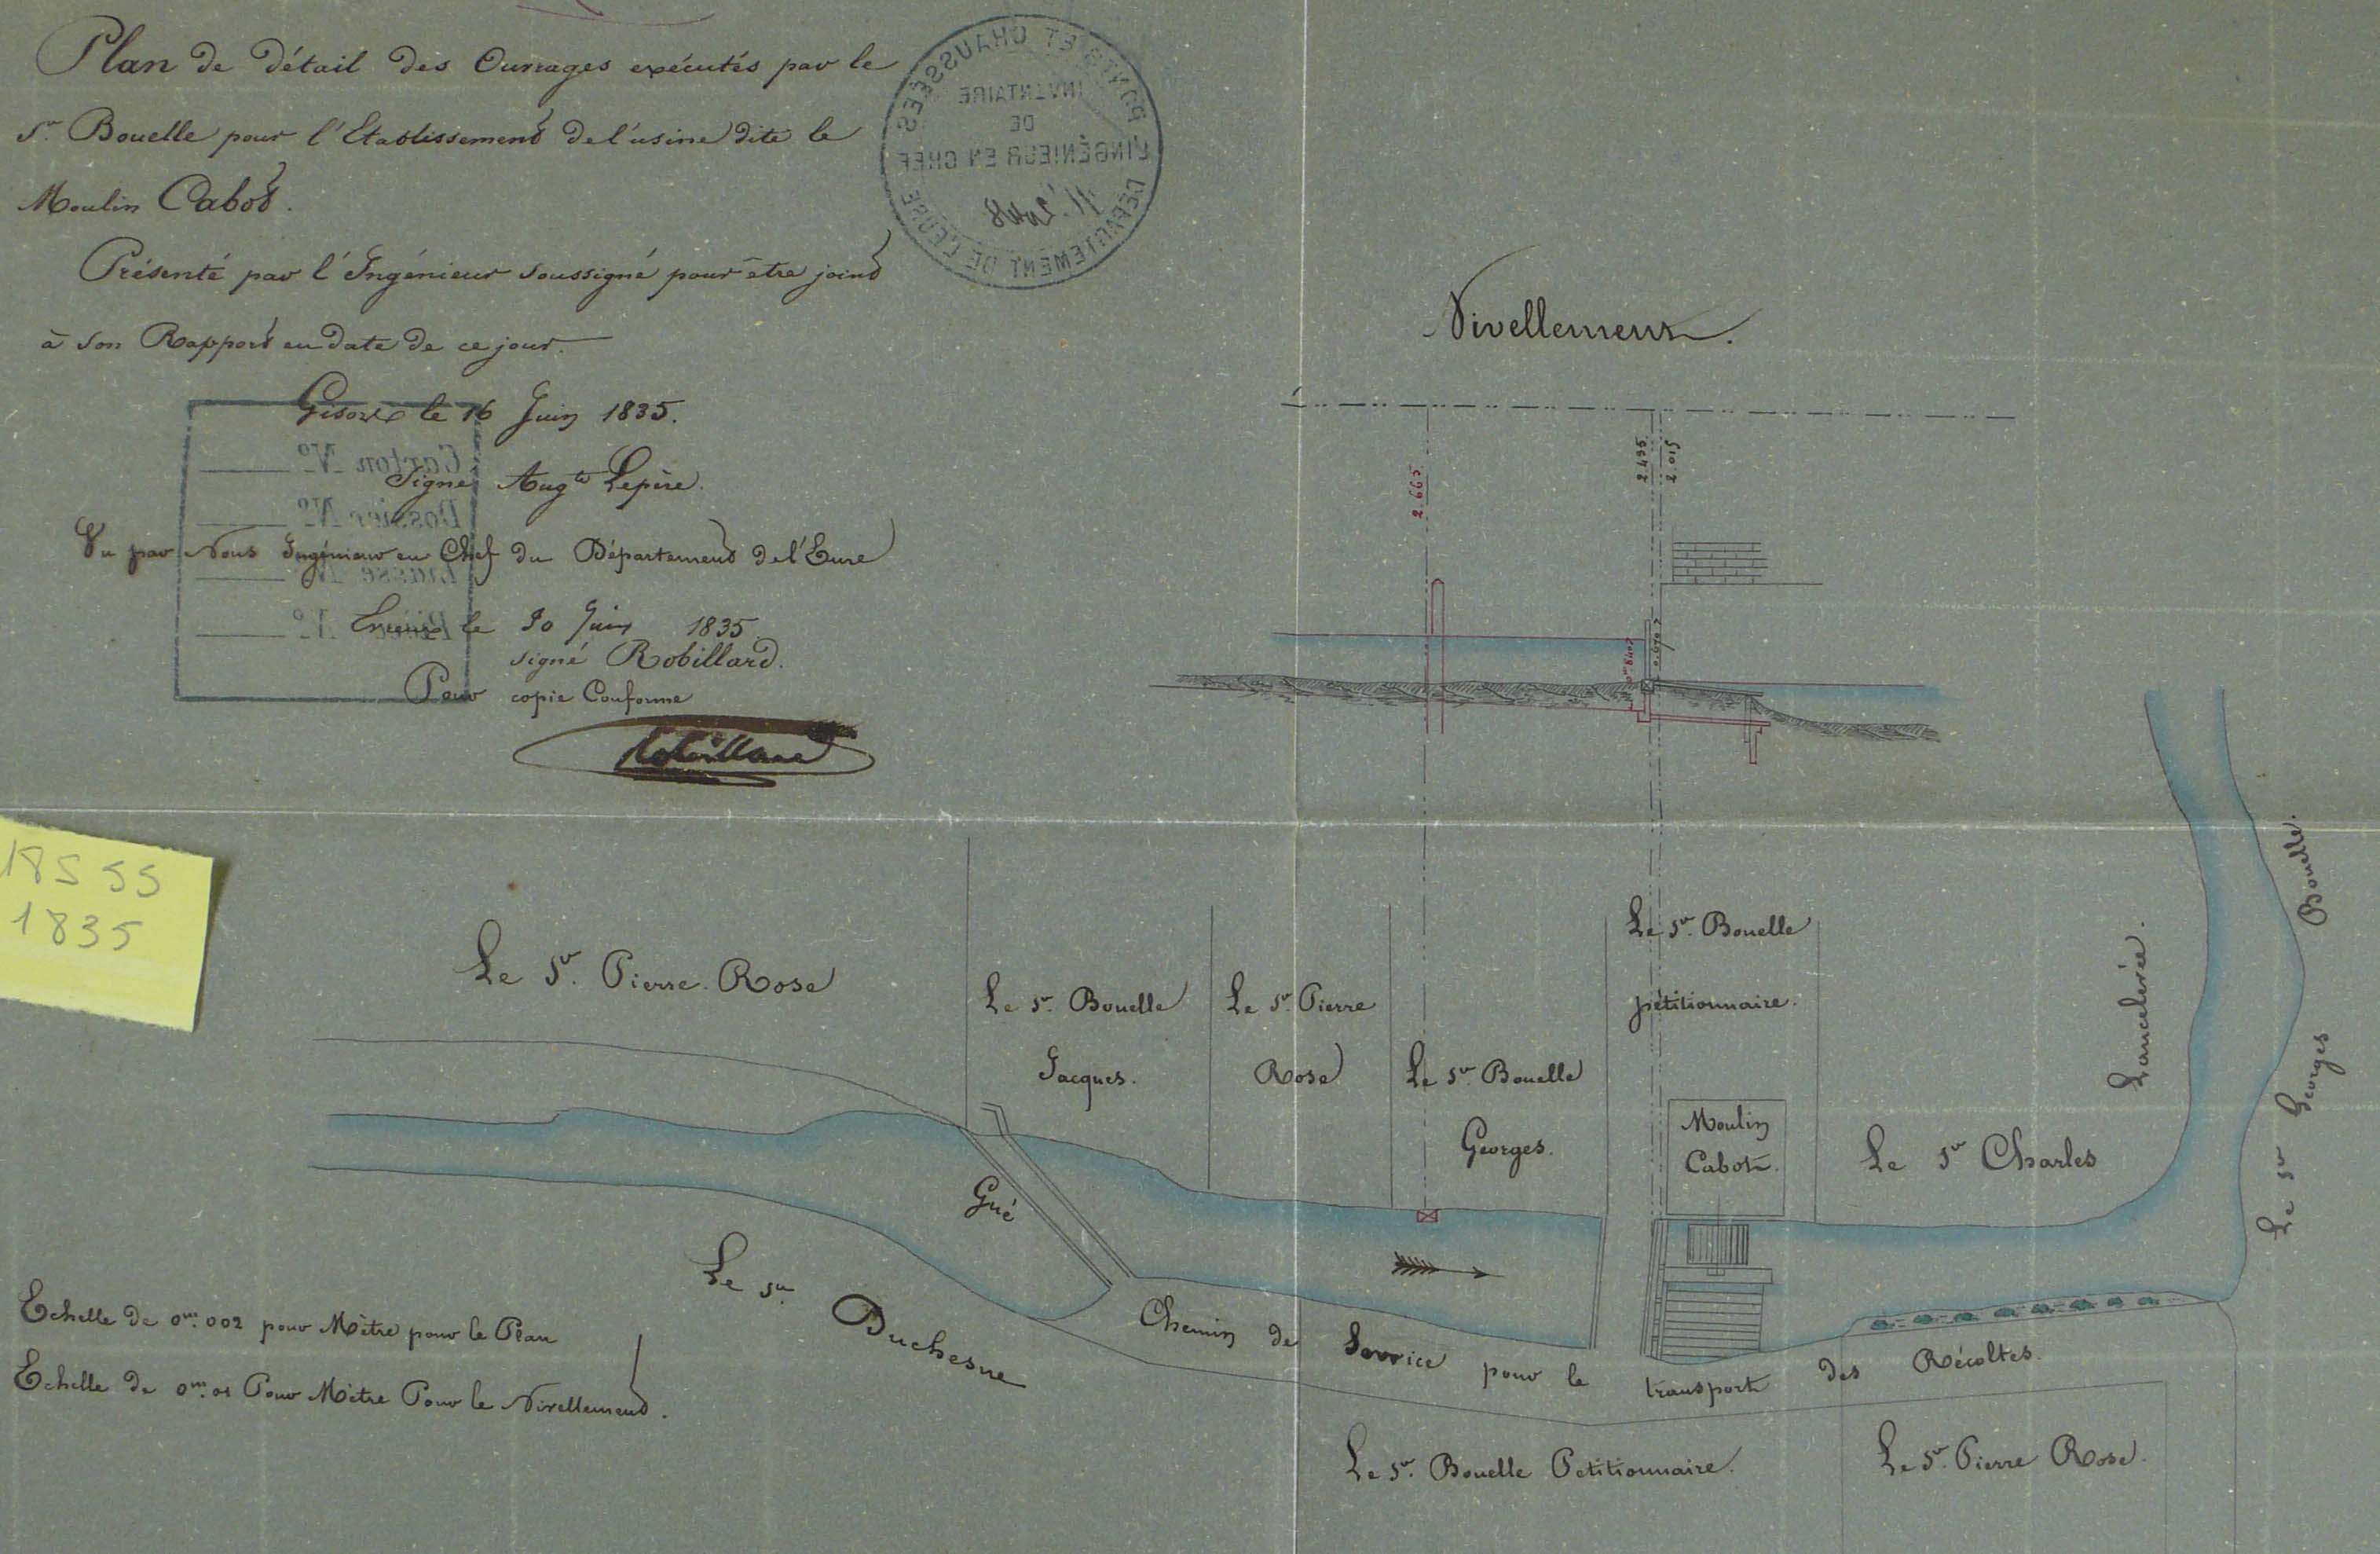 Plan de détail des Ouvrages exécutés par le
Sr. Bouelle pour l'Etablissement de l'usine dite le
Moulin Cabot.
Présenté par l'Ingénieur soussigné pour être joint
à son Rapport en date de ce jour.
Gisors le 16 Juin 1835.
Signé Augte Lepère.
Vu par Nous Ingénieur en Chef du Département de l'Eure
Evreux le 30 Juin 1835.
signé Robillard.
Pour copie Conforme
Robillard
PONTS ET CHAUSSÉES
INVENTAIRE
DE
L'INGÉNIEUR EN CHEF
DÉPARTEMENT DE L'EURE
Carton No
Dossier No
Liasse No
Pièce No
18555
1835
Nivellement.
2.665
2.435
2.015
Le Sr. Pierre Rose
Le Sr. Bouelle
Jacques.
Le Sr. Pierre
Rose
Le Sr. Bouelle
Georges.
Le Sr. Bouelle
pétitionnaire.
Moulin
Cabot.
Le Sr Charles
Lancelevée.
Le Sr Georges Bouelle.
Gué
Le Sr. Duchesne
Chemin de Service pour le transport des Récoltes.
Le Sr. Bouelle Petitionnaire.
Le Sr. Pierre Rose.
Echelle de 0m.002 pour Mètre pour le Plan
Echelle de 0m.01 Pour Mètre Pour le Nivellement.